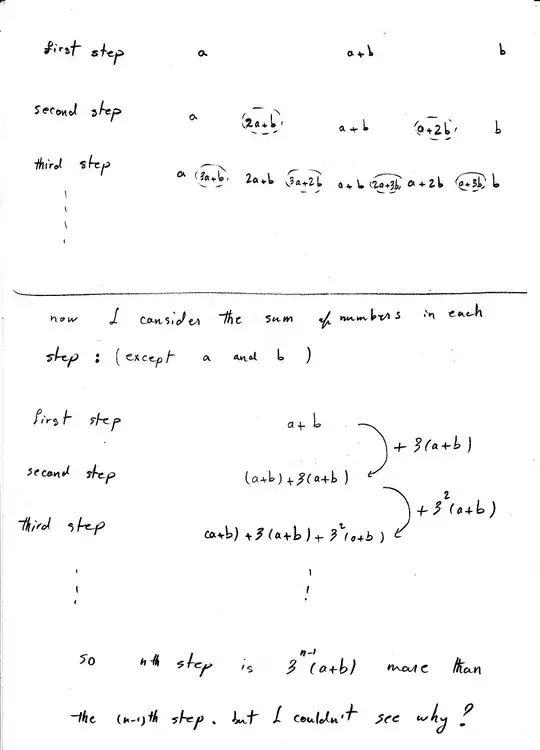 first step a a+b b
second step a (2a+b) a+b (a+2b) b
third step a (3a+b) 2a+b (3a+2b) a+b (2a+3b) a+2b (a+3b) b
now I consider the sum of numbers in each
step : (except a and b )
first step a+b
+ 3(a+b)
second step (a+b)+3(a+b)
+3²(a+b)
third step (a+b)+3(a+b)+3²(a+b)
so nth step is 3ⁿ⁻¹(a+b) more than
the (n-1)th step. but I couldn't see why?